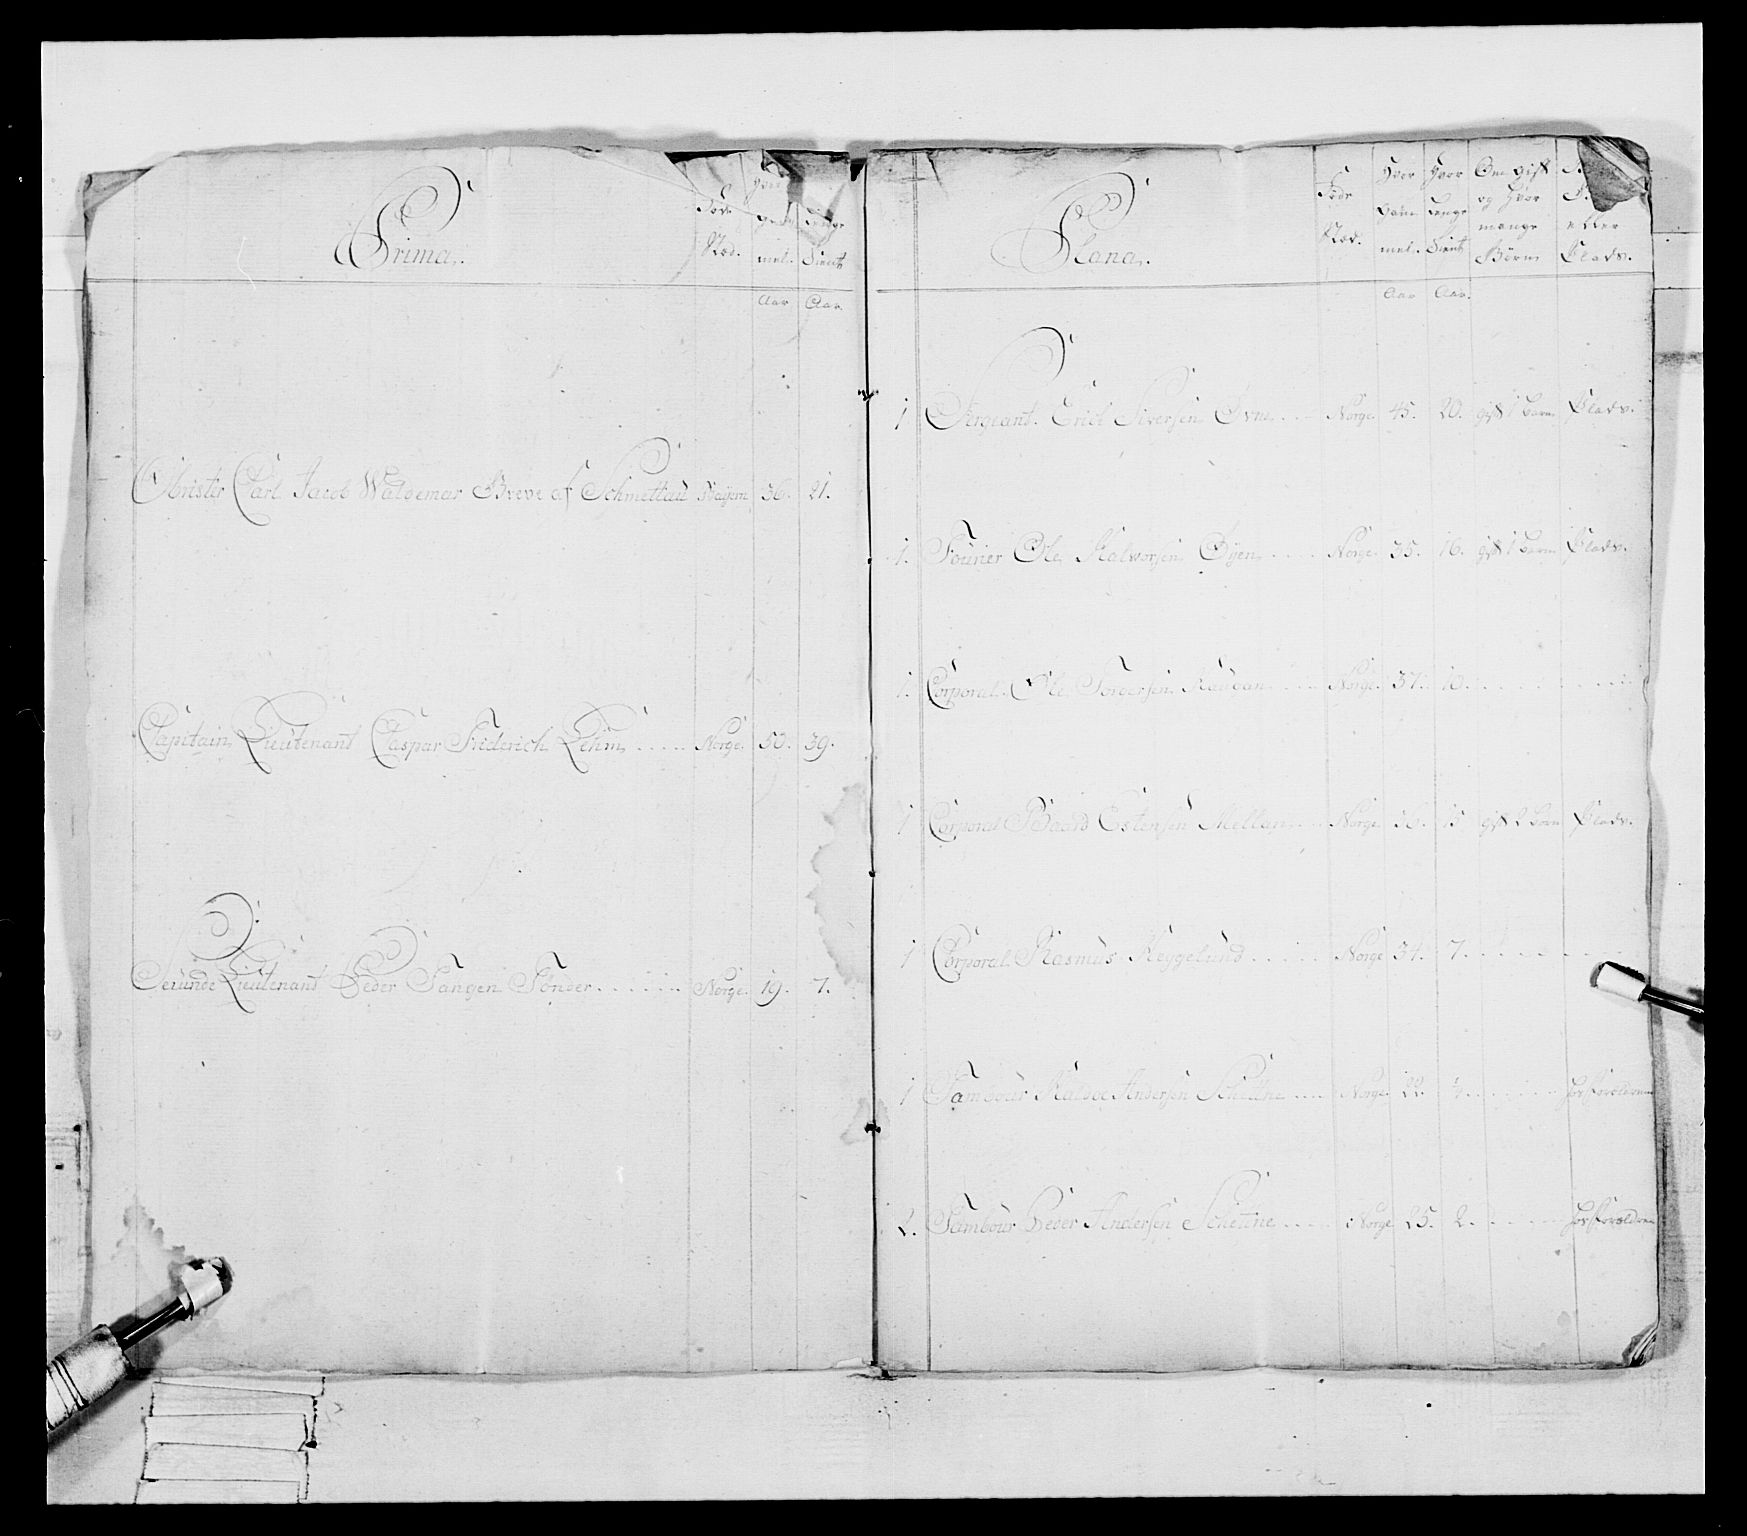 Prima.
Föde Stæd.
Hvor gam mel.
Længe Tient
Aar
Aar
Obrister Carl Jacob Waldemar Greve af Schmettau Bayern 36. 21.
Capitain Lieutenant Caspar Friderich Lehm ..... Norge. 50. 39.
Secunde Lieutenant Peder Tangen Tönder ...... Norge. 19. 7.
Plana.
Föde Stæd.
Hvor Gam mel.
Hvor Længe Tient
Om gift og hvor mange Börn
eller Pladv.
Aar
Aar.
1 Sergeant. Erich Siversen Øvne ... Norge 45. 20. gift 1 barn Pladv.
1. Fourier Ole Halvorsen Øyen ..... Norge 35. 16. gift 1 barn Pladv.
1. Corporal. Ole Tordersen Haugan ..... Norge. 37. 10.
1 Corporal Baard Estensen Mellan ... Norge 36. 15 gift 2 börn Pladv.
1 Corporal. Rasmus Heygelund ...... Norge 34. 7.
1 Tambour Andersen Schettne .... Norge. 22. hos forældrene
2. Tambour Peder Andersen Schettne .... Norge 25. 2. hos forældrene